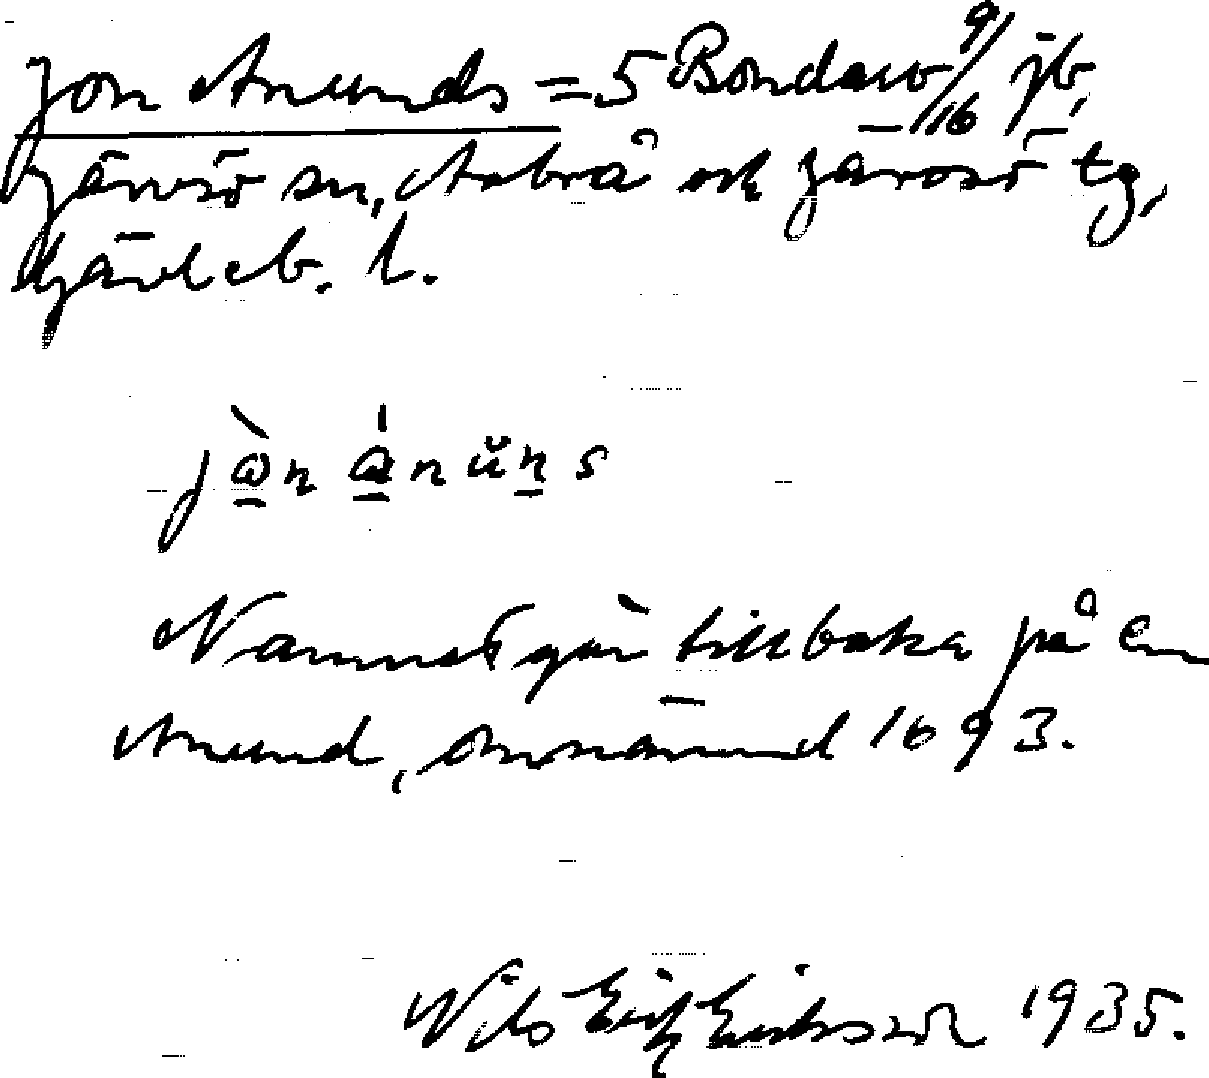 Jon Anunds = 5 Bondarv 9/16 jb,
Järvsö sn, Arbrå och Järvsö tg,
Gävleb. l.
jòn ánŭns
Namnet går tillbaka på en
Anund, omnämnd 1693.
Nils Erik Eriksson 1935.